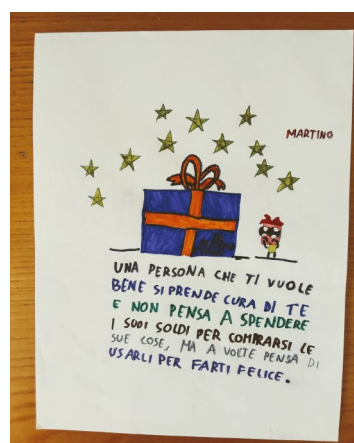 MARTINO
UNA PERSONA CHE TI VUOLE
BENE SI PRENDE CURA DI TE
E NON PENSA A SPENDERE
I SUOI SOLDI PER COMPRARSI LE
SUE COSE, MA A VOLTE PENSA DI
USARLI PER FARTI FELICE.